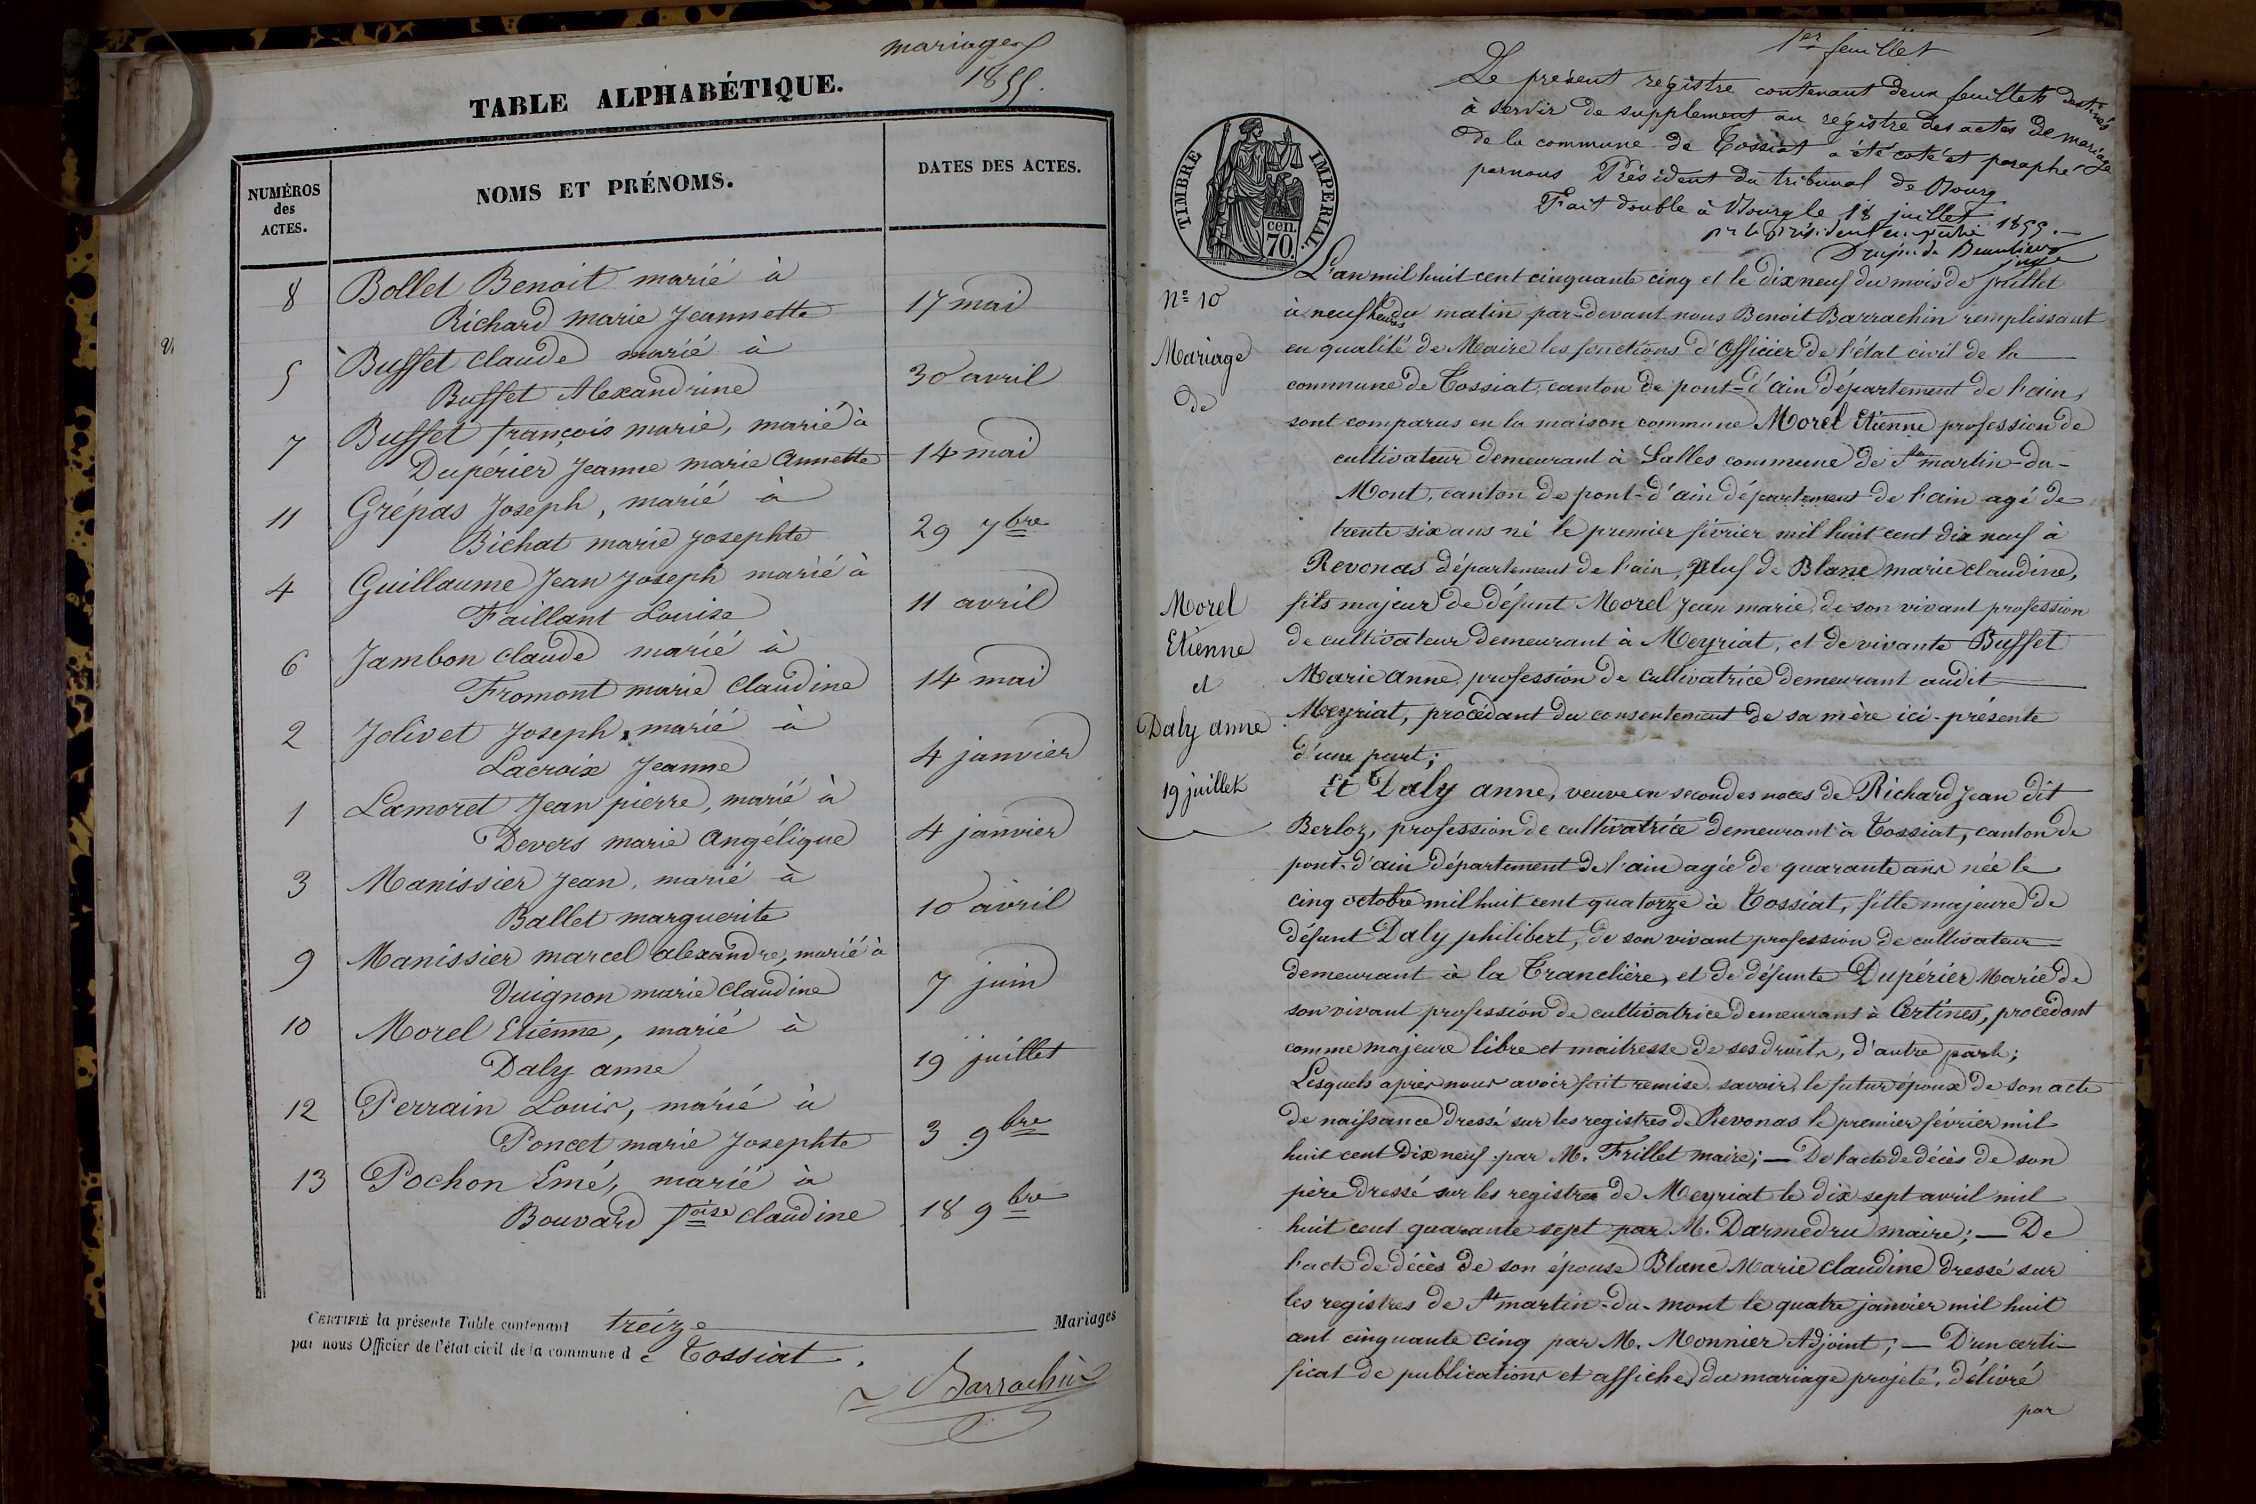 mariages
1855.
TABLE ALPHABÉTIQUE.
NUMÉROS des ACTES.
NOMS ET PRÉNOMS.
DATES DES ACTES.
8 Bollet Benoit marié à
Richard marie Jeannette 17 mai
5 Buffet claude marié à
Buffet Alexandrine 30 avril
7 Buffet françois marie, marié à
Dupérier Jeanne marie Annette 14 mai
11 Grépas Joseph, marié à
Bichat marie Josephte 29 7bre
4 Guillaume Jean Joseph marié à
Faillant Louise 11 avril
6 Jambon claude marié à
Fromont marie Claudine 14 mai
2 Jolivet Joseph, marié à
Lacroix Jeanne 4 janvier
1 Lamoret Jean pierre, marié à
Devers marie Angélique 4 janvier
3 Manissier Jean, marié à
Ballet marguerite 10 avril
9 Manissier marcel alexandre, marié à
Vuignon marie Claudine 7 juin
10 Morel Etienne, marié à
Daly anne 19 juillet
12 Perrain Louis, marié à
Poncet marie Josephte 3 9bre
13 Pochon Émé, marié à
Bouvard foise claudine 18 9bre
CERTIFIÉ la présente Table contenant treize Mariages
par nous Officier de l'état civil de la commune de Tossiat.
Barrachin
1er feuillet
Le présent registre contenant deux feuillets destinés
à servir de supplement au registre des actes de mariage
de la commune de Tossiat a été coté et paraphé
par nous Président du tribunal de Bourg
Fait double à Bourg le 18 juillet 1855.
TIMBRE IMPÉRIAL.
cen.
70.
N° 10
Mariage
de
Morel
Etienne
et
Daly anne
19 juillet
L'an mil huit cent cinquante cinq et le dix neuf du mois de juillet
à neuf heures du matin par-devant nous Benoit Barrachin remplissant
en qualité de Maire les fonctions d'Officier de l'état civil de la
commune de Tossiat, canton de pont-d'ain département de l'ain,
sont comparus en la maison commune Morel Etienne profession de
cultivateur demeurant à Salles commune de St martin-du-
Mont, canton de pont-d'ain département de l'ain agé de
trente six ans né le premier février mil huit cent dix neuf à
Revonas département de l'ain, veuf de Blanc marie claudine,
fils majeur de défunt Morel Jean marie, de son vivant profession
de cultivateur demeurant à Meyriat, et de vivante Buffet
Marie Anne, profession de Cultivatrice demeurant audit
Meyriat, procédant du consentement de sa mère ici-présente
d'une part;
Et Daly anne, veuve en secondes noces de Richard Jean dit
Berloz, profession de cultivatrice demeurant à Tossiat, canton de
pont-d'ain département de l'ain agée de quarante ans née le
cinq octobre mil huit cent quatorze à Tossiat, fille majeure de
défunt Daly philibert, de son vivant profession de cultivateur
demeurant à la Tranclière, et de défunte Dupérier Marie de
son vivant profession de cultivatrice demeurant à Certines, procédant
comme majeure libre et maitresse de ses droits, d'autre part;
Lesquels après nous avoir fait remise savoir, le futur époux de son acte
de naissance dressé sur les registres de Revonas le premier février mil
huit cent dix neuf par M. Frillet maire; — De l'acte de décès de son
père dressé sur les registres de Meyriat le dix sept avril mil
huit cent quarante sept par M. Darmedru maire; — De
l'acte de décès de son épouse Blanc Marie claudine dressé sur
les registres de St martin-du-mont le quatre janvier mil huit
cent cinquante cinq par M. Monnier Adjoint; — D'un certi-
ficat de publications et affiches du mariage projeté, délivré
par